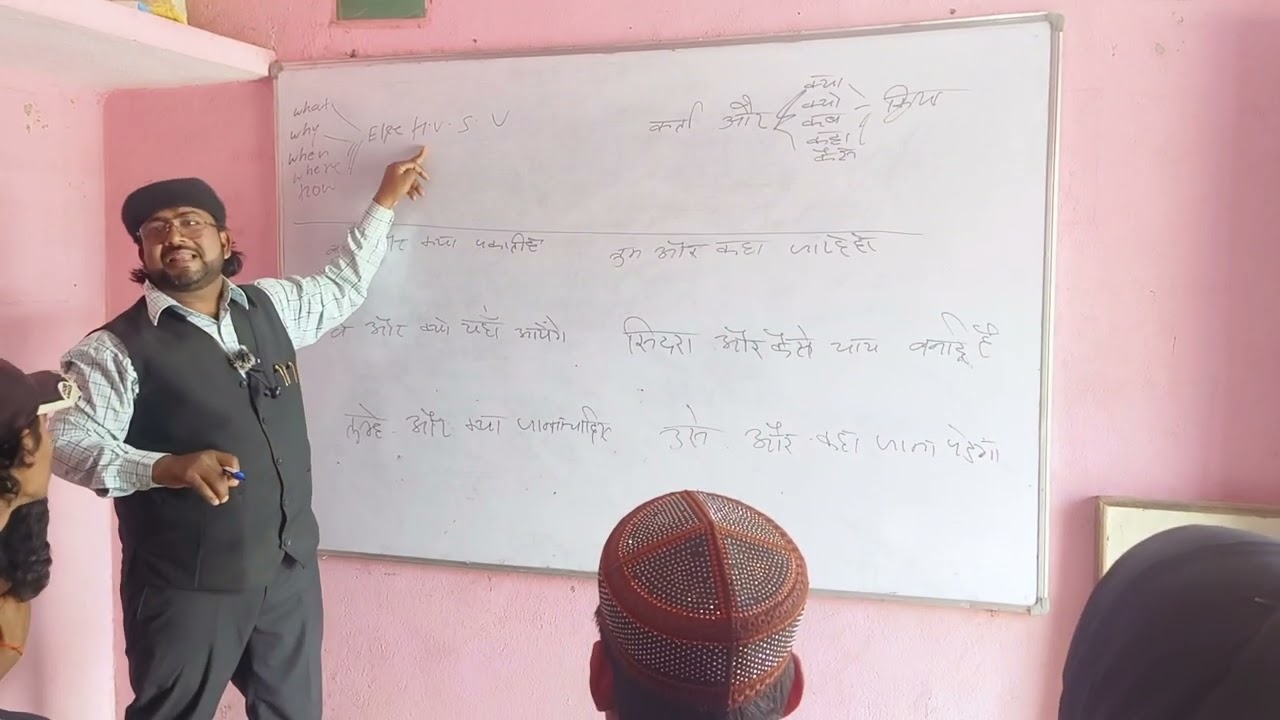 what
why
when
where
how
Else H.V. S. V
कर्ता और
क्या
क्यो
कब
कहा
कैसे
क्रिया
क्या पकातीहै
तुम और कहा जारहेहो
और क्यो यहाँ आयेंगे
सिदरा और कैसे चाय बनाईहै
तुम्हे और क्या जानाचाहिए
उसे और कहा जाना पड़ेगा